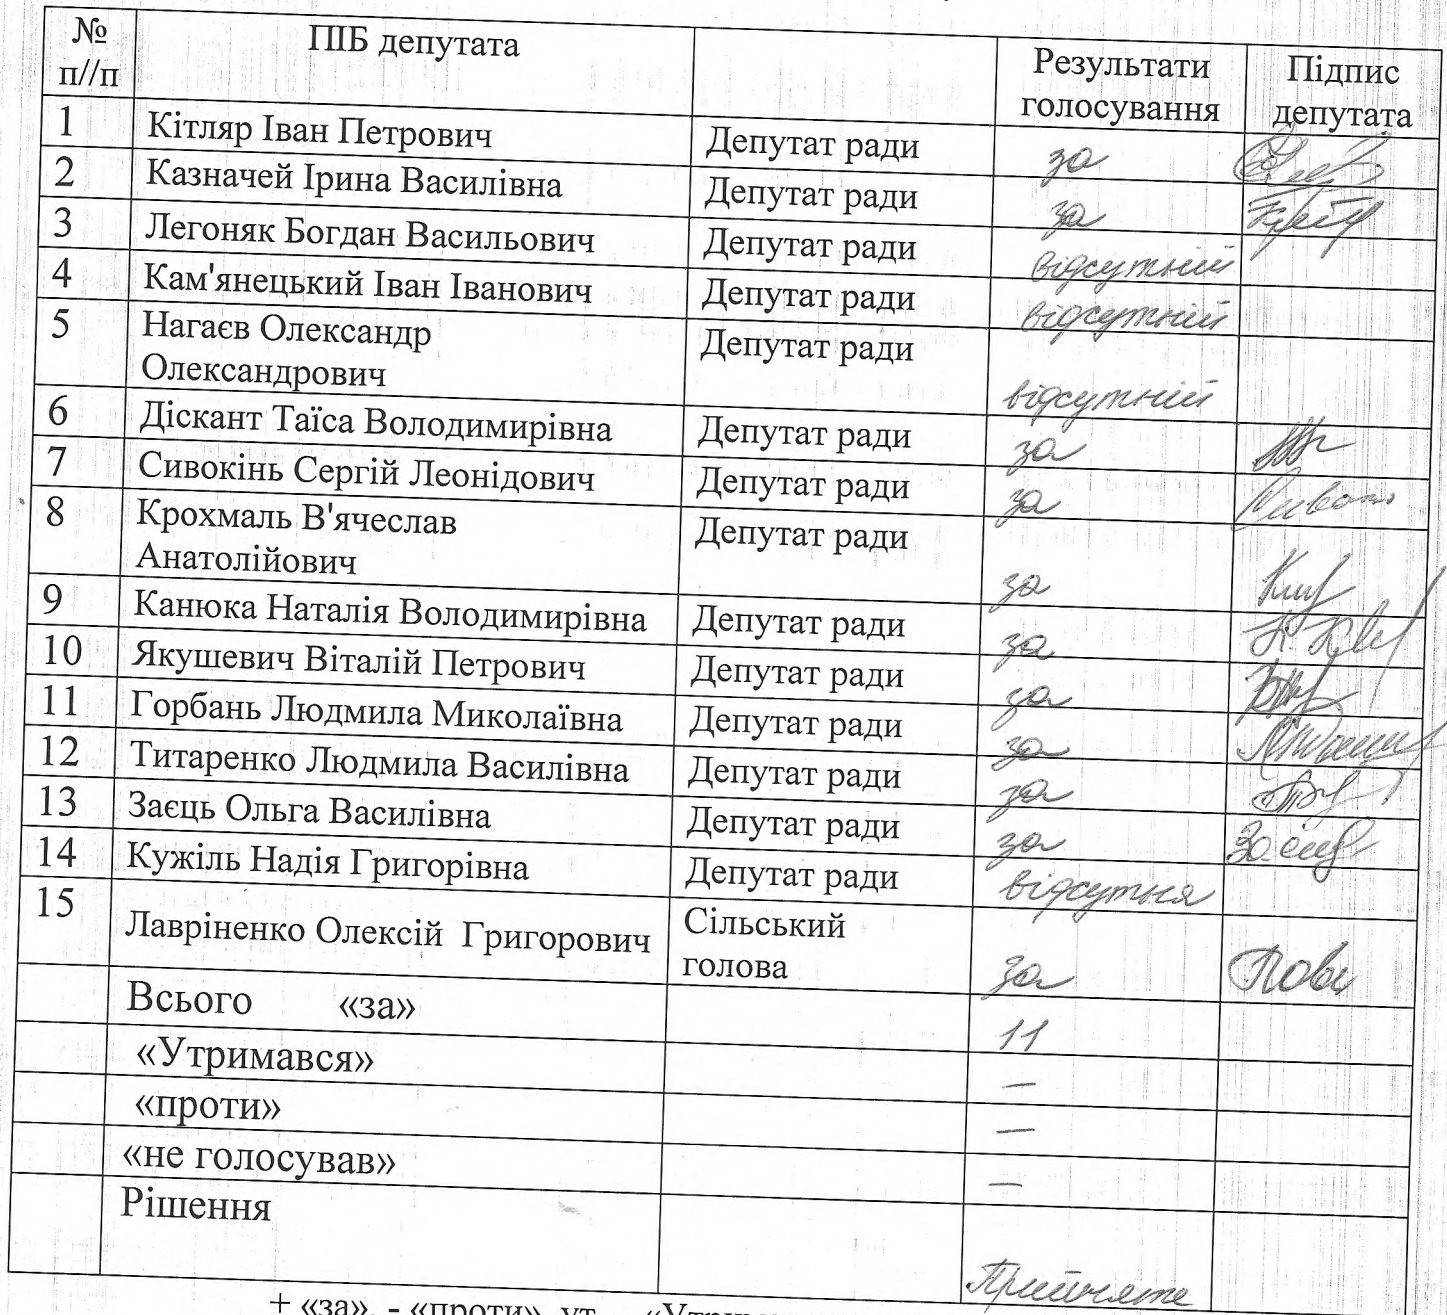 № п//п ПІБ депутата Результати голосування Підпис депутата
1 Кітляр Іван Петрович Депутат ради за
2 Казначей Ірина Василівна Депутат ради за
3 Легоняк Богдан Васильович Депутат ради відсутній
4 Кам'янецький Іван Іванович Депутат ради відсутній
5 Нагаєв Олександр Олександрович Депутат ради відсутній
6 Діскант Таїса Володимирівна Депутат ради за
7 Сивокінь Сергій Леонідович Депутат ради за
8 Крохмаль В'ячеслав Анатолійович Депутат ради за
9 Канюка Наталія Володимирівна Депутат ради за
10 Якушевич Віталій Петрович Депутат ради за
11 Горбань Людмила Миколаївна Депутат ради за
12 Титаренко Людмила Василівна Депутат ради за
13 Заєць Ольга Василівна Депутат ради за
14 Кужіль Надія Григорівна Депутат ради відсутня
15 Лавріненко Олексій Григорович Сільський голова за
Всього «за» 11
«Утримався» —
«проти» —
«не голосував» —
Рішення Прийняте
+ «за», - «проти», ут